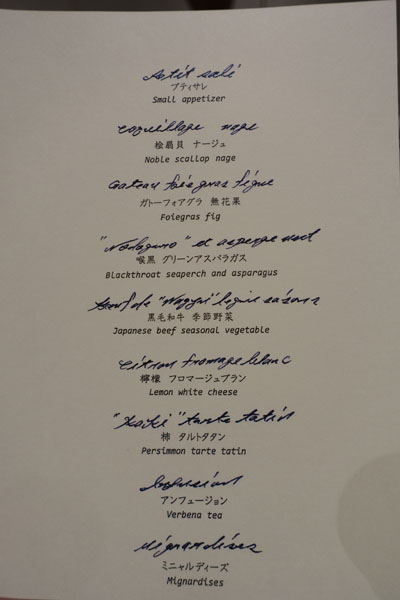 Petit salé
プティサレ
Small appetizer
coquillage nage
桧扇貝 ナージュ
Noble scallop nage
Gateau foie gras figue
ガトーフォアグラ 無花果
Foiegras fig
"Nodoguro" et asperge vert
喉黒 グリーンアスパラガス
Blackthroat seaperch and asparagus
"Wagyu" légume saison
黒毛和牛 季節野菜
Japanese beef seasonal vegetable
Citron fromage blanc
檸檬 フロマージュブラン
Lemon white cheese
"Kaki" tarte tatin
柿 タルトタタン
Persimmon tarte tatin
Infusion
アンフュージョン
Verbena tea
Mignardises
ミニャルディーズ
Mignardises